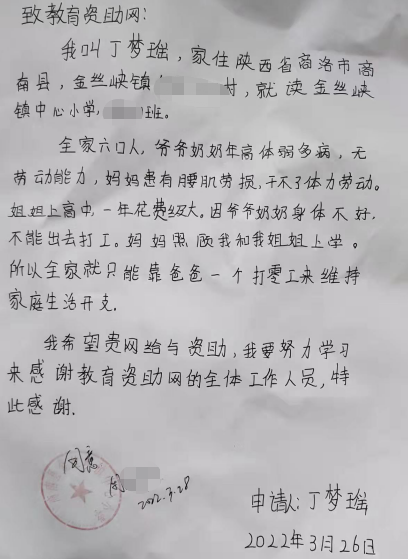 致教育资助网:
我叫丁梦瑶，家住陕西省商洛市商
南县，金丝峡镇 村，就读金丝峡
镇中心小学， 班。
全家六口人，爷爷奶奶年高体弱多病，无
劳动能力，妈妈患有腰肌劳损，干不了体力劳动。
姐姐上高中，一年花费级大。因爷爷奶奶身体不好，
不能出去打工。妈妈照顾我和我姐姐上学。
所以全家就只能靠爸爸一个打零工来维持
家庭生活开支.
我希望贵网给与资助，我要努力学习
来感谢教育资助网的全体工作人员，特
此感谢.
同意
2022.3.28
申请人:丁梦瑶
2022年3月26日